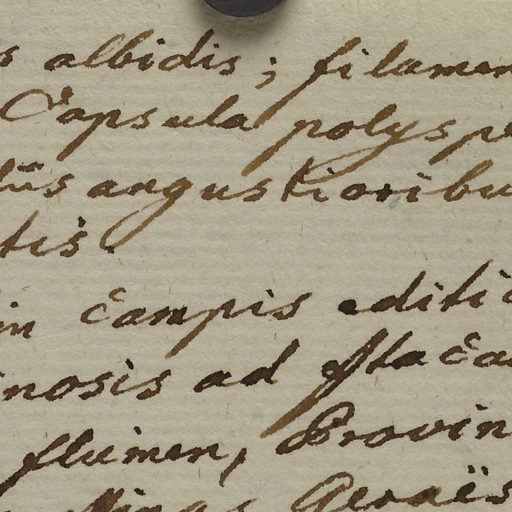 s albidis; filamen
Capsula polyspe
tiis angustioribu
tis.
in campis editi
nosis ad Itaca
flumen, Provin
Minas Geraës